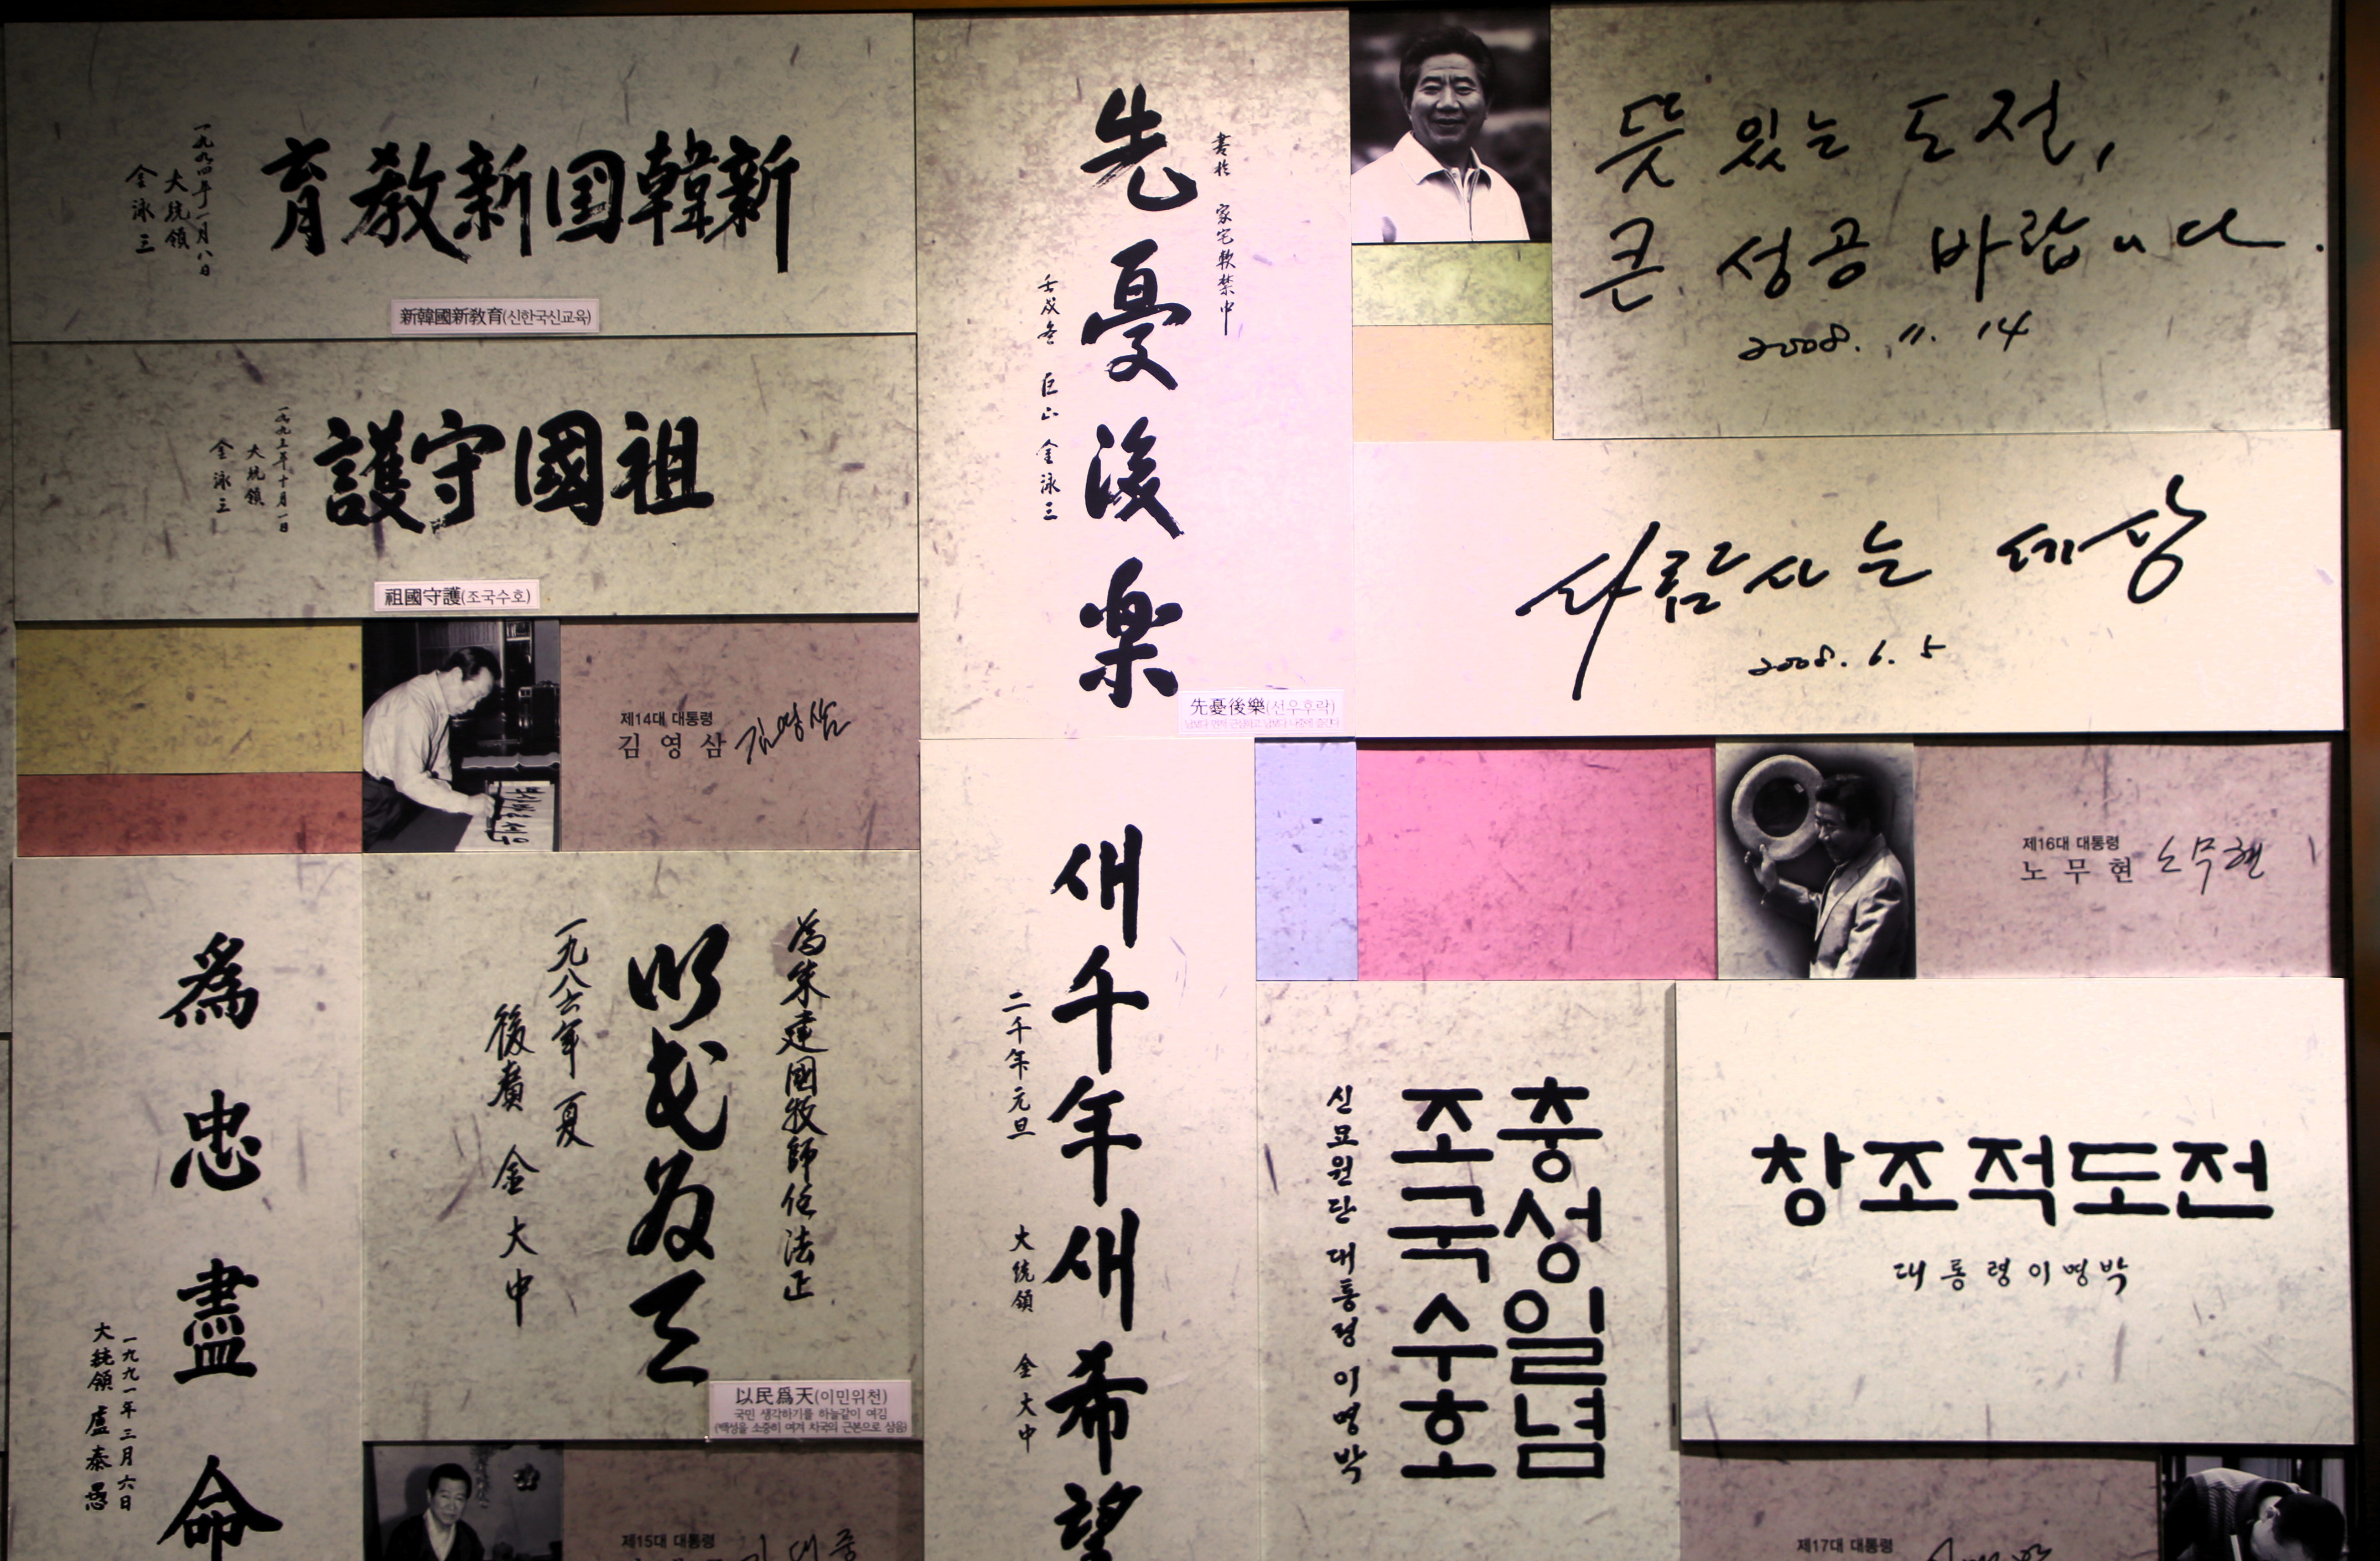 新韓国新教育
一九九四年一月八日
大統領
金泳三
新韓國新敎育(신한국신교육)
祖國守護
大統領
金泳三
祖國守護(조국수호)
제14대 대통령
김영삼 김영삼
書於 家宅軟禁中
先憂後楽
壬戌冬 巨山 金泳三
先憂後樂(선우후락)
뜻 있는 도전,
큰 성공 바랍니다.
2008. 11. 14
사람 사는 세상
2008. 6. 5
제16대 대통령
노무현 노무현
為忠盡命
一九九一年三月六日
大統領 盧泰愚
為朱建國牧師任法正
以民为天
一九八六年 夏
後廣 金大中
以民爲天(이민위천)
국민 생각하기를 하늘같이 여김
(백성을 소중히 여겨 치국의 근본으로 삼음)
제15대 대통령
새千年새希望
二千年元旦
大統領 金大中
충성일념
조국수호
신묘원단 대통령 이명박
창조적도전
대통령이명박
제17대 대통령